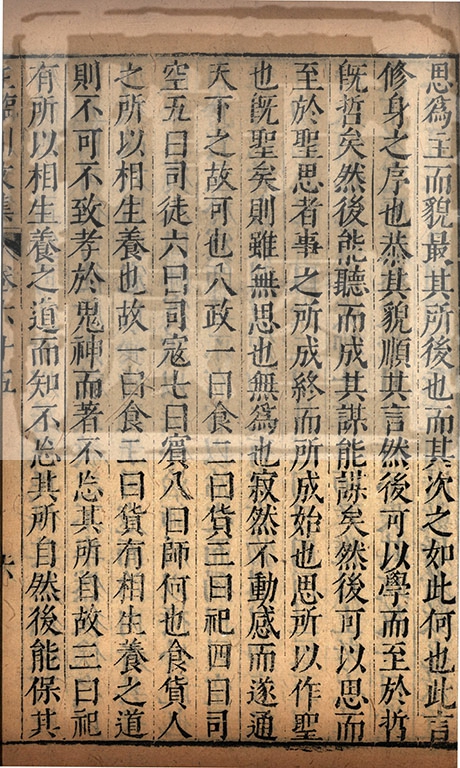 思爲主而貌最其所後也而其次之如此何也此言
修身之序也恭其貌順其言然後可以學而至於哲
旣哲矣然後能聽而成其謀能謀矣然後可以思而
至於聖思者事之所成終而所成始也思所以作聖
也旣聖矣則雖無思也無爲也寂然不動感而遂通
天下之故可也八政一曰食二曰貨三曰祀四曰司
空五曰司徒六曰司寇七曰賓八曰師何也食貨人
之所以相生養也故一曰食二曰貨有相生養之道
則不可不致孝於鬼神而著不忘其所自故三曰祀
有所以相生養之道而知不忘其所自然後能保其
王臨川文集 卷六十五 六